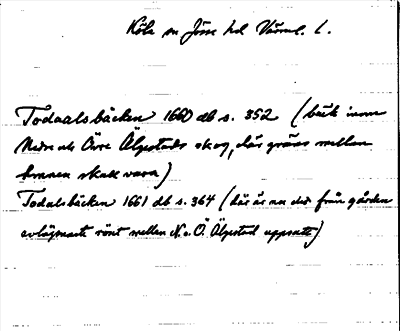 Köla sn Jösse hd Värml. l.
Todaalsbäcken 1660 db s. 352 (bäck inom
Nedre och Övre Älgestads skog, där gräns mellan
dem skall vara)
Todalsbäcken 1661 db s. 364 (där är en del från gården
röset mellan N. o. Ö. Älgestad uppsatt)